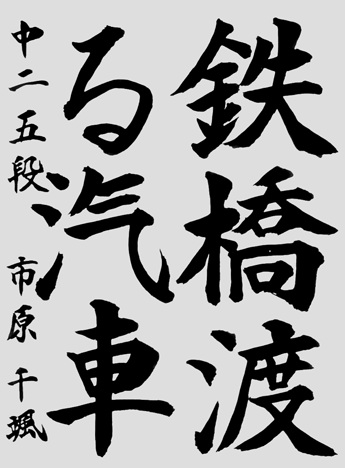 鉄橋渡
る汽車
中二 五段 市原 千颯